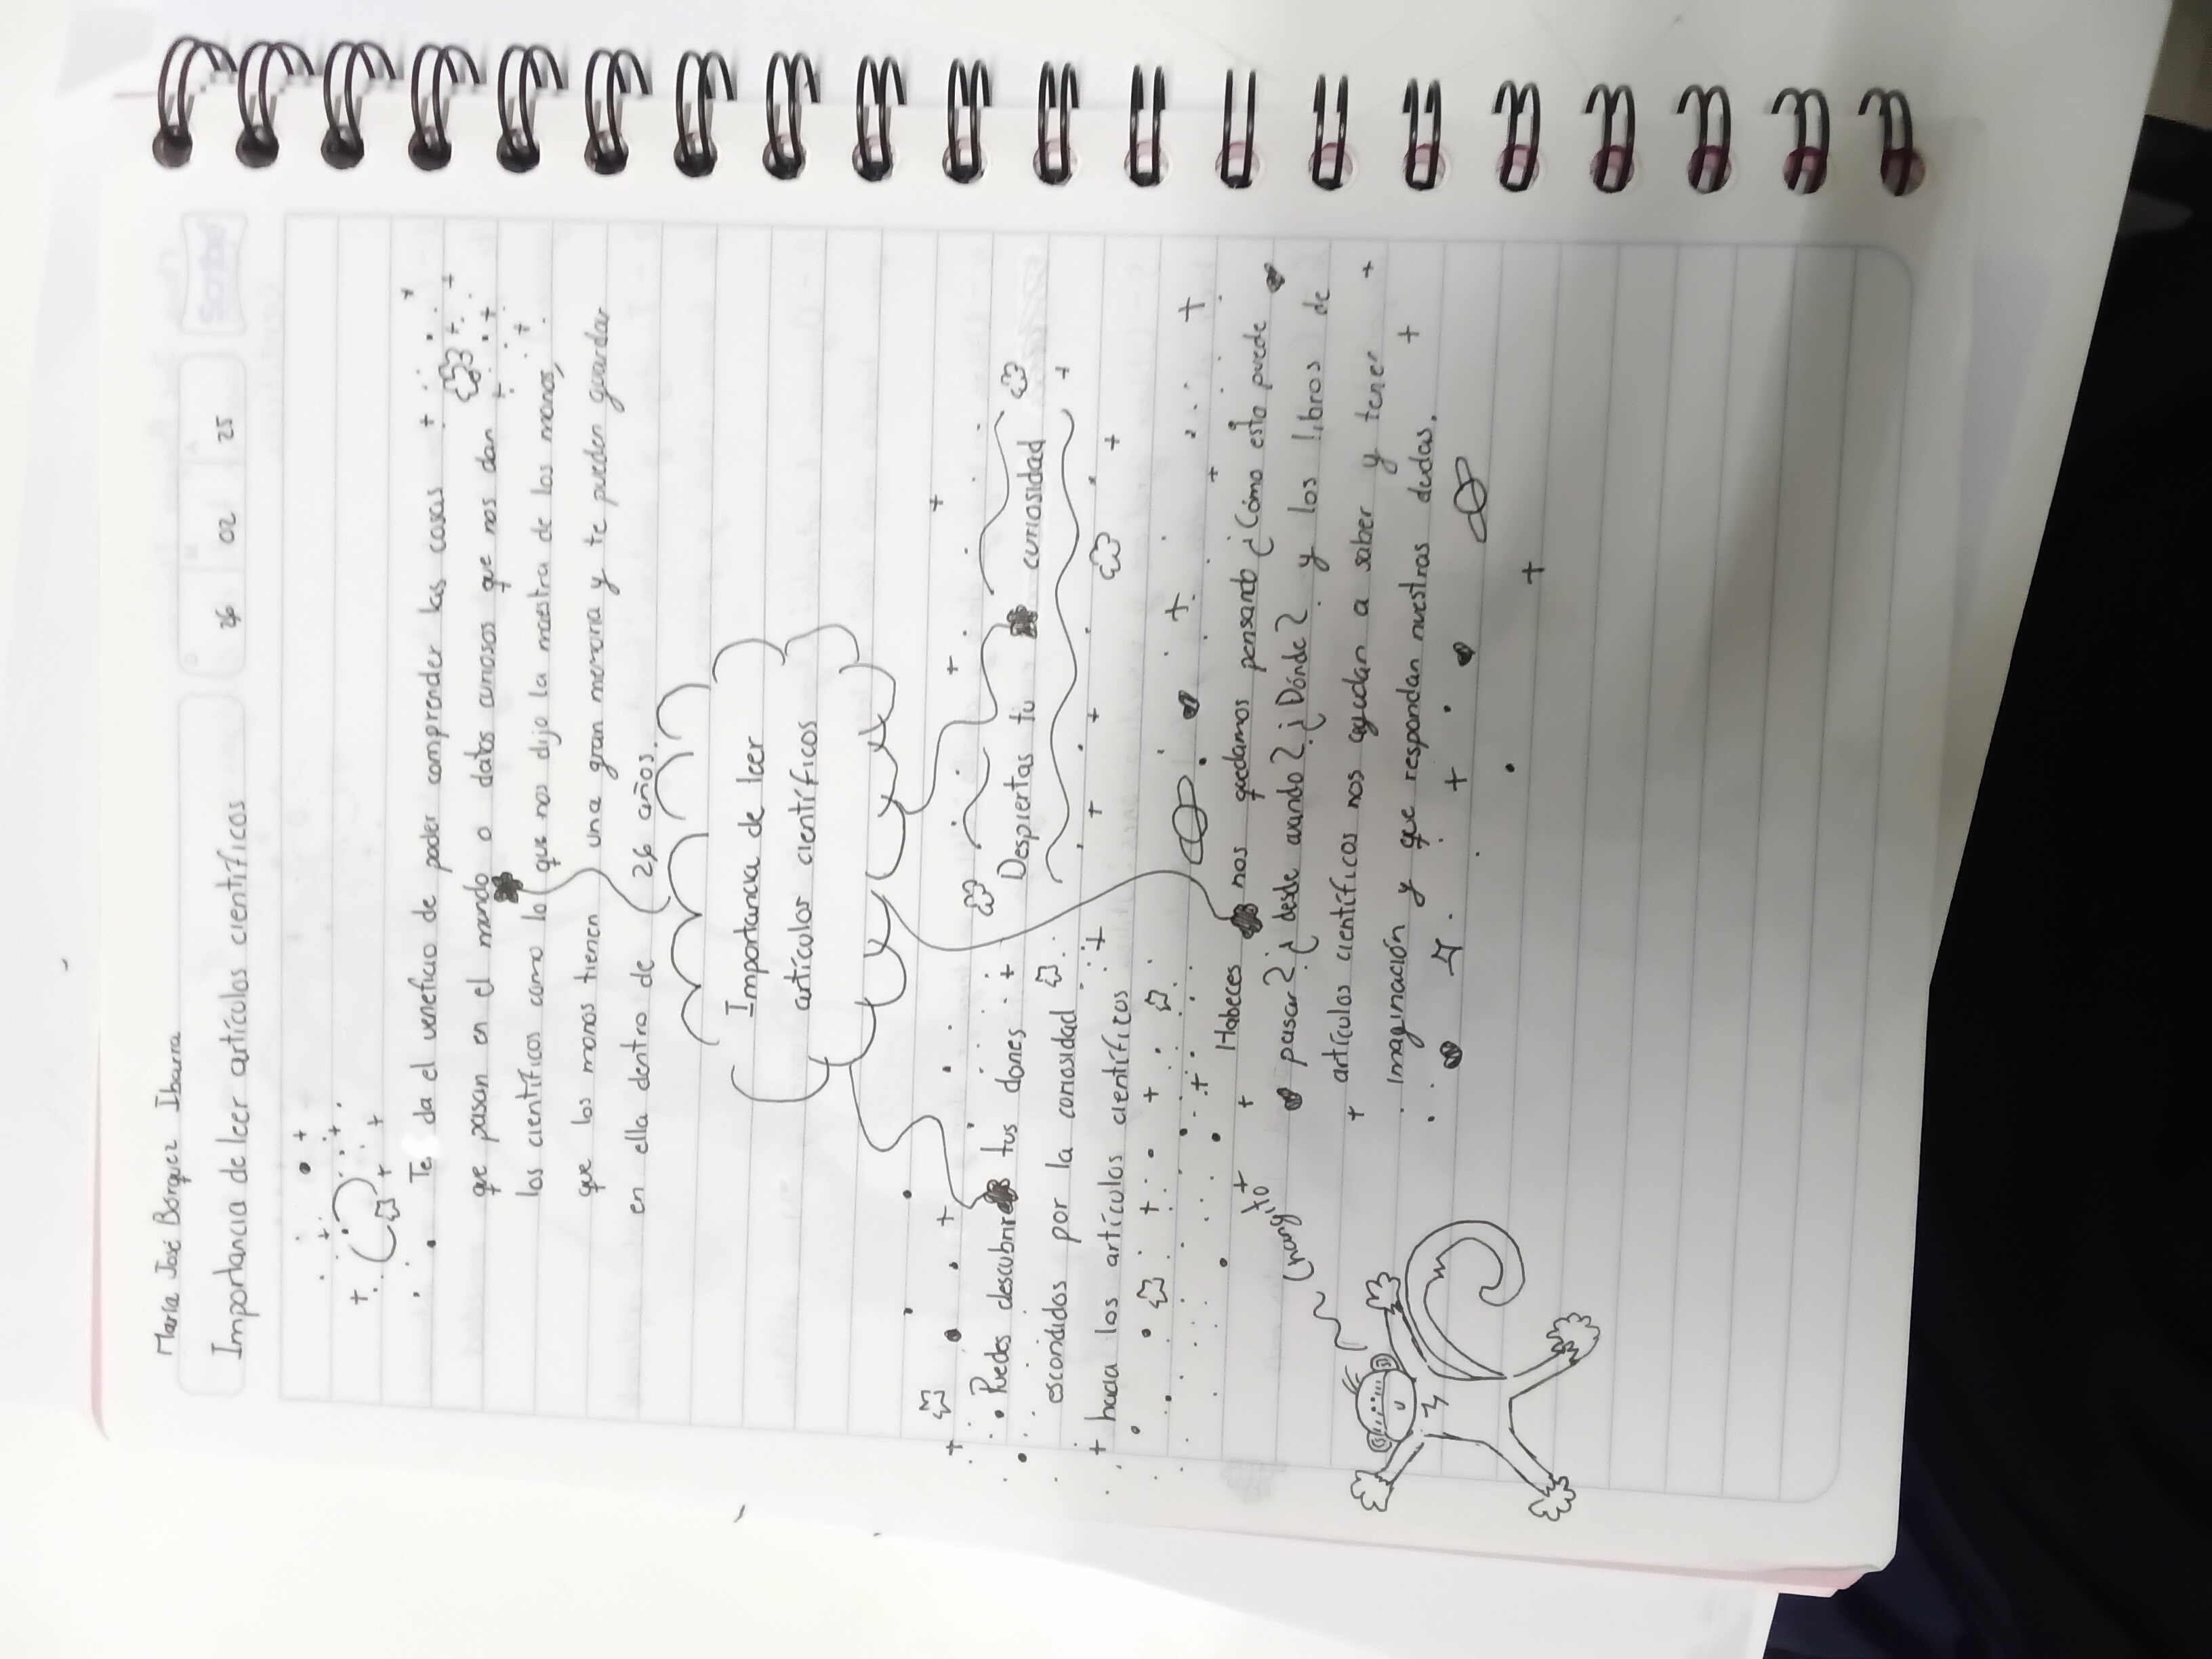 María José Bórquez Ibarra
Importancia de leer artículos científicos
D M A
26 02 25
Te da el veneficio de poder comprender las cosas
que pasan en el mundo o datos curiosos que nos dan
los científicos como lo que nos dijo la maestra de los monos,
que los monos tienen una gran memoria y te pueden guardar
en ella dentro de 26 años.
Importancia de leer
artículos científicos
Puedes descubrir tus dones
escondidos por la curiosidad
hacia los artículos científicos
Despiertas tu curiosidad
Habeces nos quedamos pensando ¿Cómo esto puede
pasar? ¿desde cuándo? ¿Dónde? y los libros de
artículos científicos nos ayudan a saber y tener
imaginación y que respondan nuestras dudas.